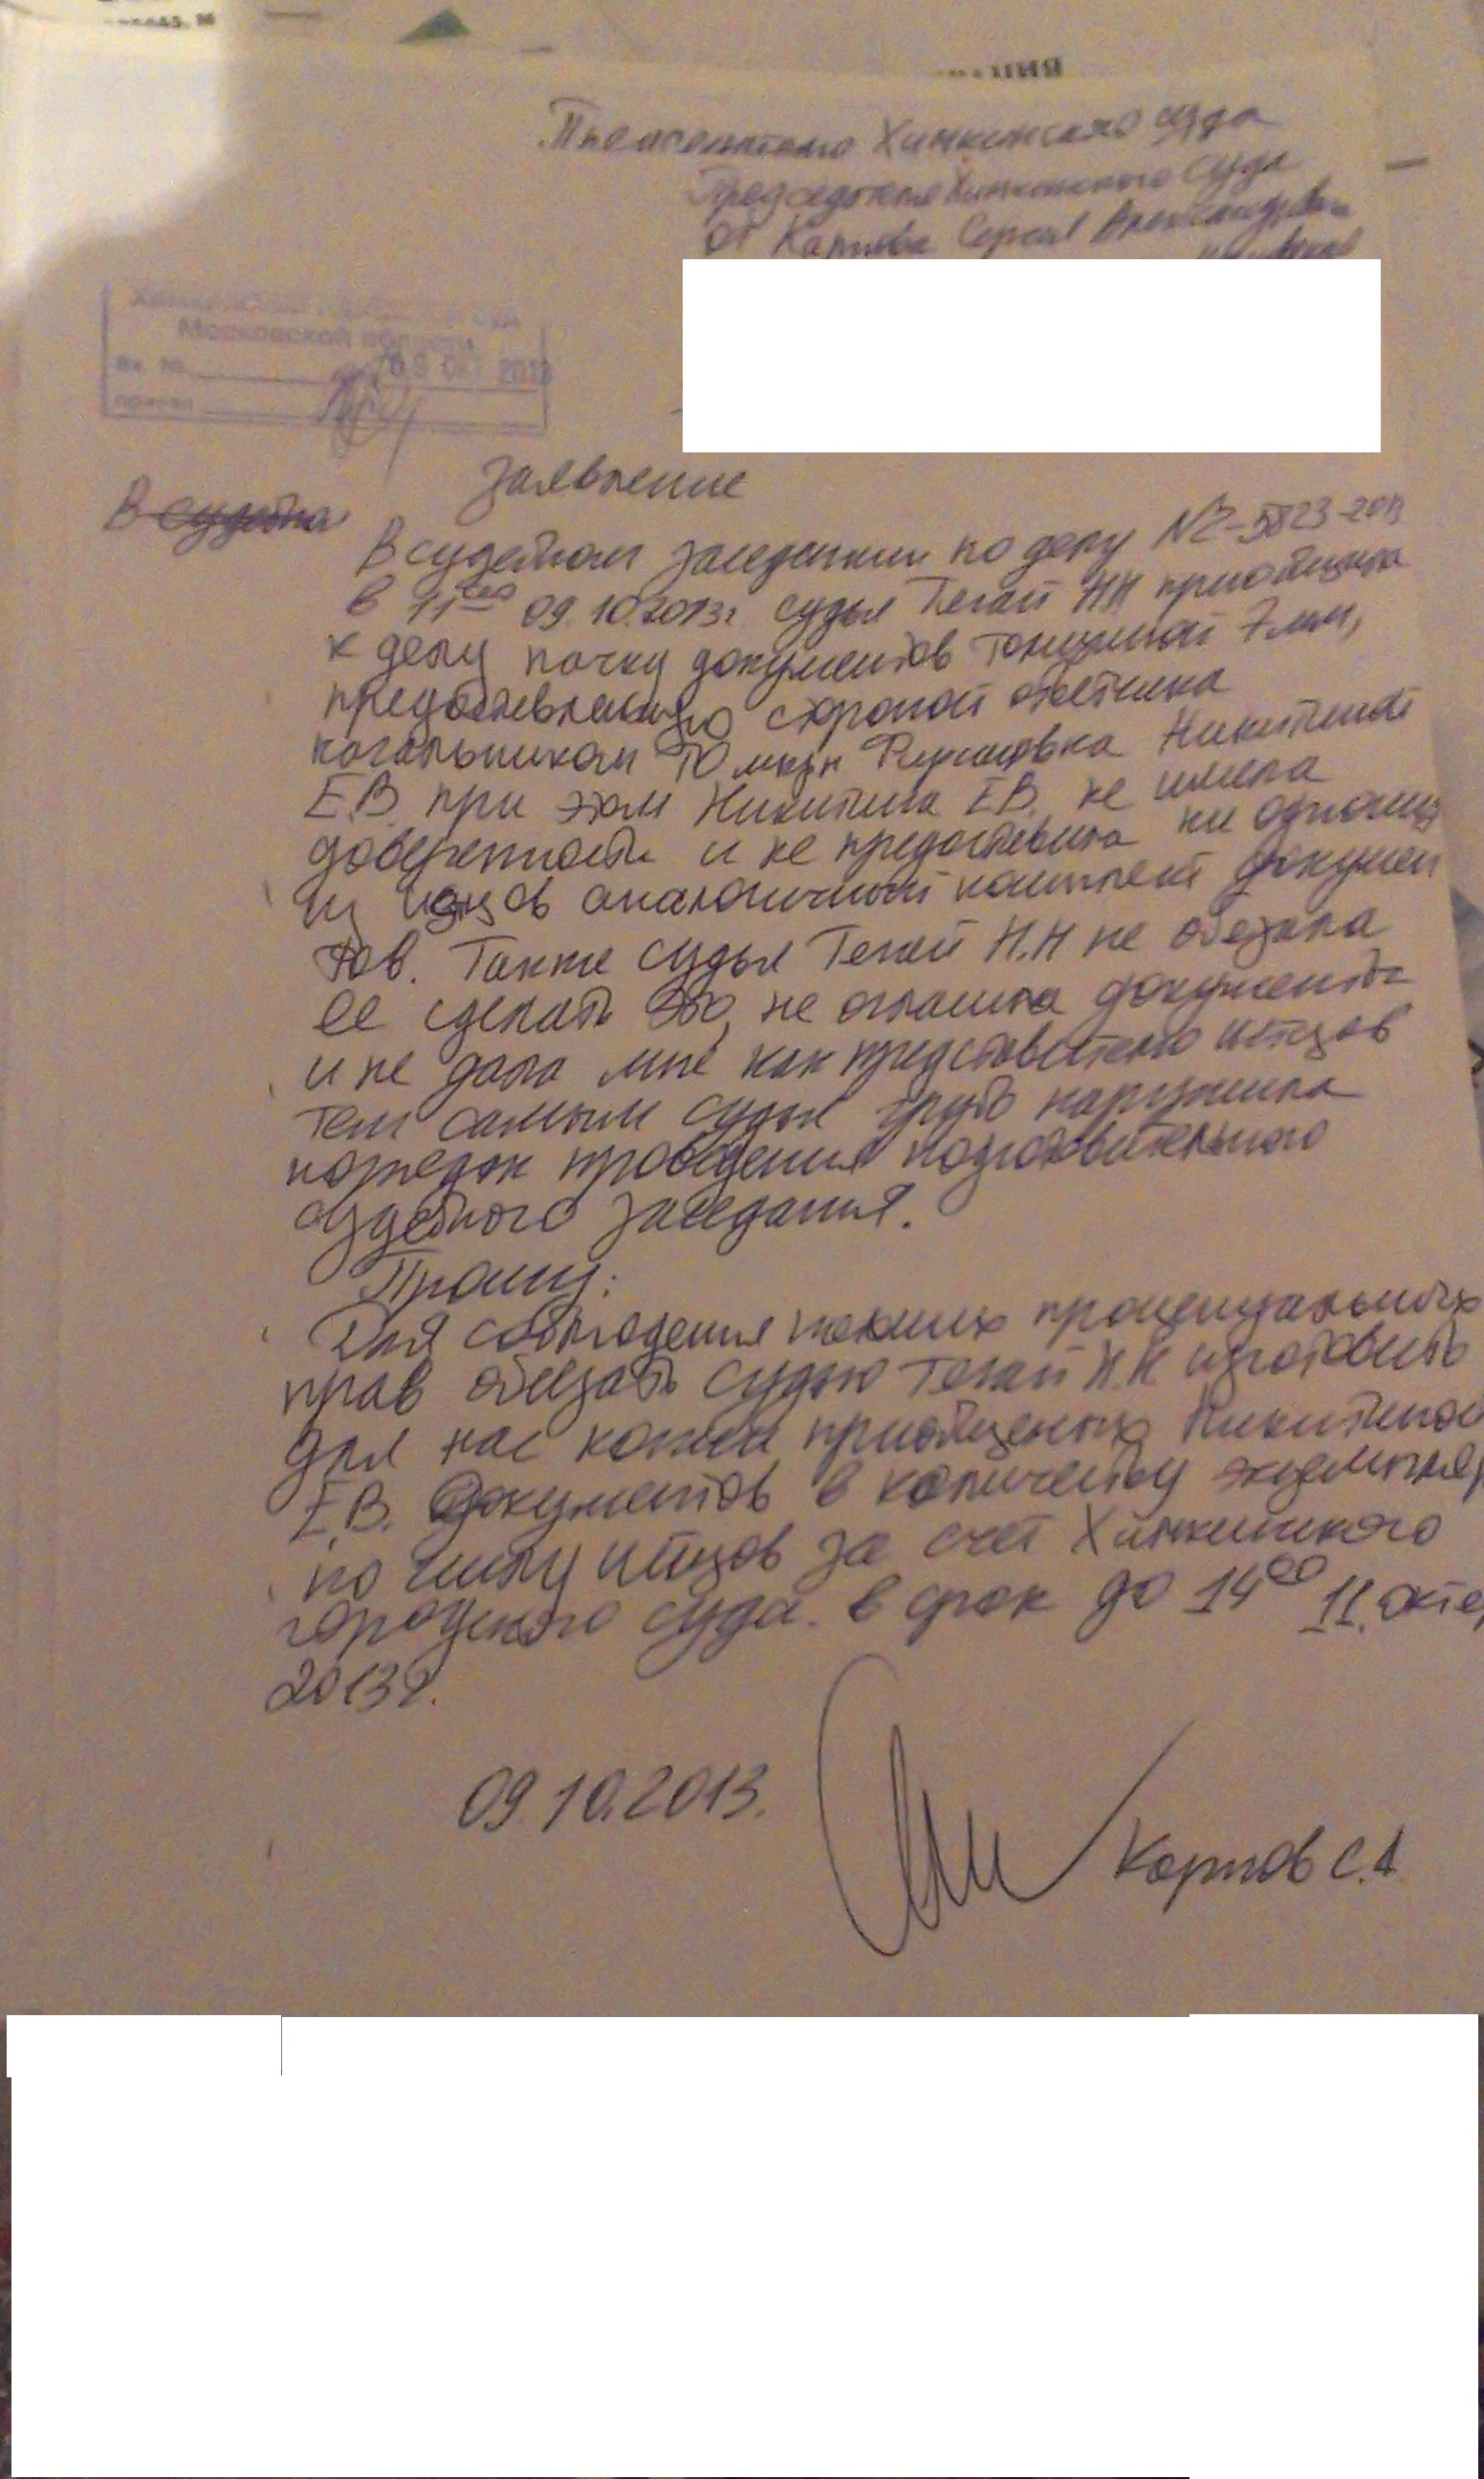 Химкинского суда
Председателю Химкинского суда
От Сергея Александрович
Химкинский городской суд
Московской области
Вх. №
09 ОКТ 2013
принял
Заявление
В судебно
В судебном заседании по делу N2-5823-2013
в 11 00 09.10.2013г. судья Тегай Н.Н приобщила
к делу пачку документов толщиной 7 мм,
предоставленную стороной ответчика
начальником Ю мкрн Фирсановка Никитиной
Е.В. при этом Никитина Е.В. не имела
доверенности и не предоставила ни одному
из истцов аналогичный комплект докумен
тов. Также судья Тегай Н.Н не обязала
ее сделать это, не огласила документы
и не дала мне как представителю истцов
тем самым судья грубо нарушила
порядок проведения подготовительного
судебного заседания.
Прошу:
Для соблюдения наших процессуальных
прав обязать судью Тегай Н.Н изготовить
для нас копии приобщеных Никитиной
Е.В. документов в количеству экземпляр
по числу истцов за счет Химкинского
городского суда. в срок до 14 00 11. октя
2013г.
09.10.2013.
Карпов С.А